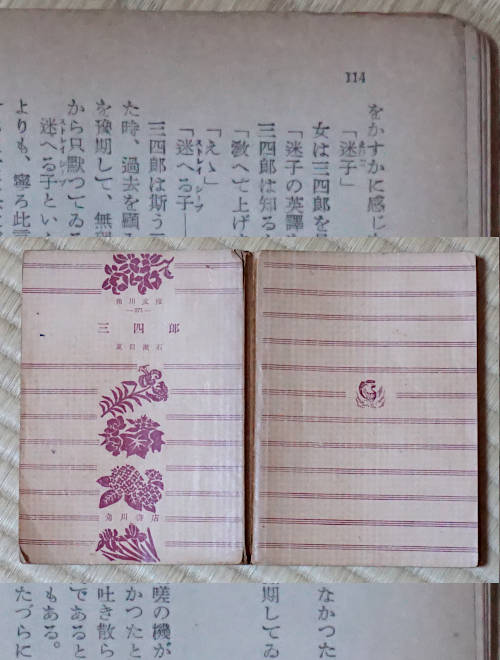 114
をかすかに感じ
「迷子」
女は三四郎を
「迷子の英譯
三四郎は知る
「教へて上げ
「えゝ」
ストレイ シープ
「迷へる子――
三四郎は斯う
た時、過去を顧
を豫期して、無
から只默つてゐる
ストレイ シープ
迷へる子とい
よりも、寧ろ此
角川文庫
三四郎
夏目漱石
角川書店
なかつた
期してゐ
嗟の機が
かつたと
吐き散ら
であると
もある。
たづらに